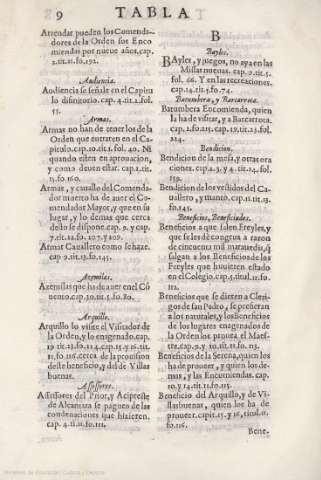 9 TABLA
Arrendar pueden los Comenda-
dores de la Orden sus Enco
miendas por nueue años. cap.
2. tit. 11. fo. 192.
Audiencia.
Audiencia se señale en el Capitu
lo difinitorio. cap. 4. tit. 2. fol.
55.
Armas.
Armas no han de tener los de la
Orden que entraren en el Ca-
pitulo. cap. 10. tit. 2. fol. 40. Ni
quando esten en aprouacion,
y como deuen estar. cap. 2. tit.
13. fo. 160.
Armas, y cauallo del Comenda-
dor muerto ha de auer el Co-
mendador Mayor, y que en su
lugar, y lo demas que cerca
dello se dispone. cap. 9. y cap.
7. tit. 12. fo. 107. y 109.
Armar Cauallero como se haze.
cap. 9. tit. 13. fo. 145.
Azemilas.
Azemilas que ha de auer en el Cō
uento. cap. 30. tit. 5. fo. 80.
Arquillo.
Arquillo lo visite el Visitador de
la Orden, y lo enagenado. cap.
19. tit. 13. fo. 114. cap. 15. y 16. tit.
11. fo. 116. cerca de la prouision
deste beneficio, y del de Villas
buenas.
Assessores.
Assessores del Prior, y Acipreste
de Alcantara se paguen de las
condenaciones que hizieren.
cap. 4. ti. 11. fo. 111.
B
Bayles.
BAyles, y juegos, no aya en las
Missas nueuas. cap. 9. tit. 5.
fol. 66. Y en las recreaciones.
cap. 14. tit. 5. fo. 74.
Batundera, y Barcarrota.
Batundera Encomienda, quien
la ha de visitar, y a Barcarrota.
cap. 2. fo. 213. cap. 19. tit. 13. fol.
214.
Bendicion.
Bendicion de la mesa, y otras ora
ciones. cap. 2. 3. y 4. tit. 14. fol.
159.
Bendicion de los vestidos del Ca-
uallero, y manto. cap. 11. tit. 13.
fo. 149.
Beneficios, Beneficiados.
Beneficios a que salen Freyles, y
que se les dé congrua a razon
de cincuenta mil marauedis, y
salgan a los Beneficios de los
Freyles que huuieren estado
en el Colegio. cap. 5. titul. 11. fo.
112.
Beneficios que se dieren a Cleri-
gos de san Pedro, se prefieran
a los naturales, y los Beneficios
de los lugares enagenados de
la Orden los prouea el Maes-
tre. cap. 9. y 10. tit. 11. fo. 113.
Beneficios de la Serena, quien los
ha de proueer, y quien los de-
mas, y las Encomiendas. cap.
10. y 14. tit. 11. fo. 115.
Beneficio del Arquillo, y de Vi-
llasbuenas, quien los ha de
proueer. cap. 15. y 16. titul. 11.
fo. 116.
Bene-